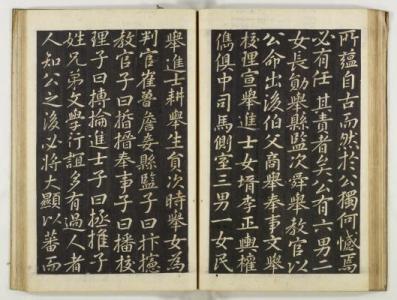 所蘊自古而然於公獨何憾焉
必有任其責者矣公有六男二
女長勛舉縣監次舜舉教官以
公命出後伯父商舉奉事文舉
校理宣舉進士女壻李正輿權
儁俱中司馬側室三男一女民
舉進士耕舉生員次時舉女為
判官崔晉詹妾縣監子曰抃
教官子曰搢奉事子曰播校
理子曰摶掄進士子曰拯推子
姓兄弟文學行誼多有過人者
人知公之後必將大顯以蕃而